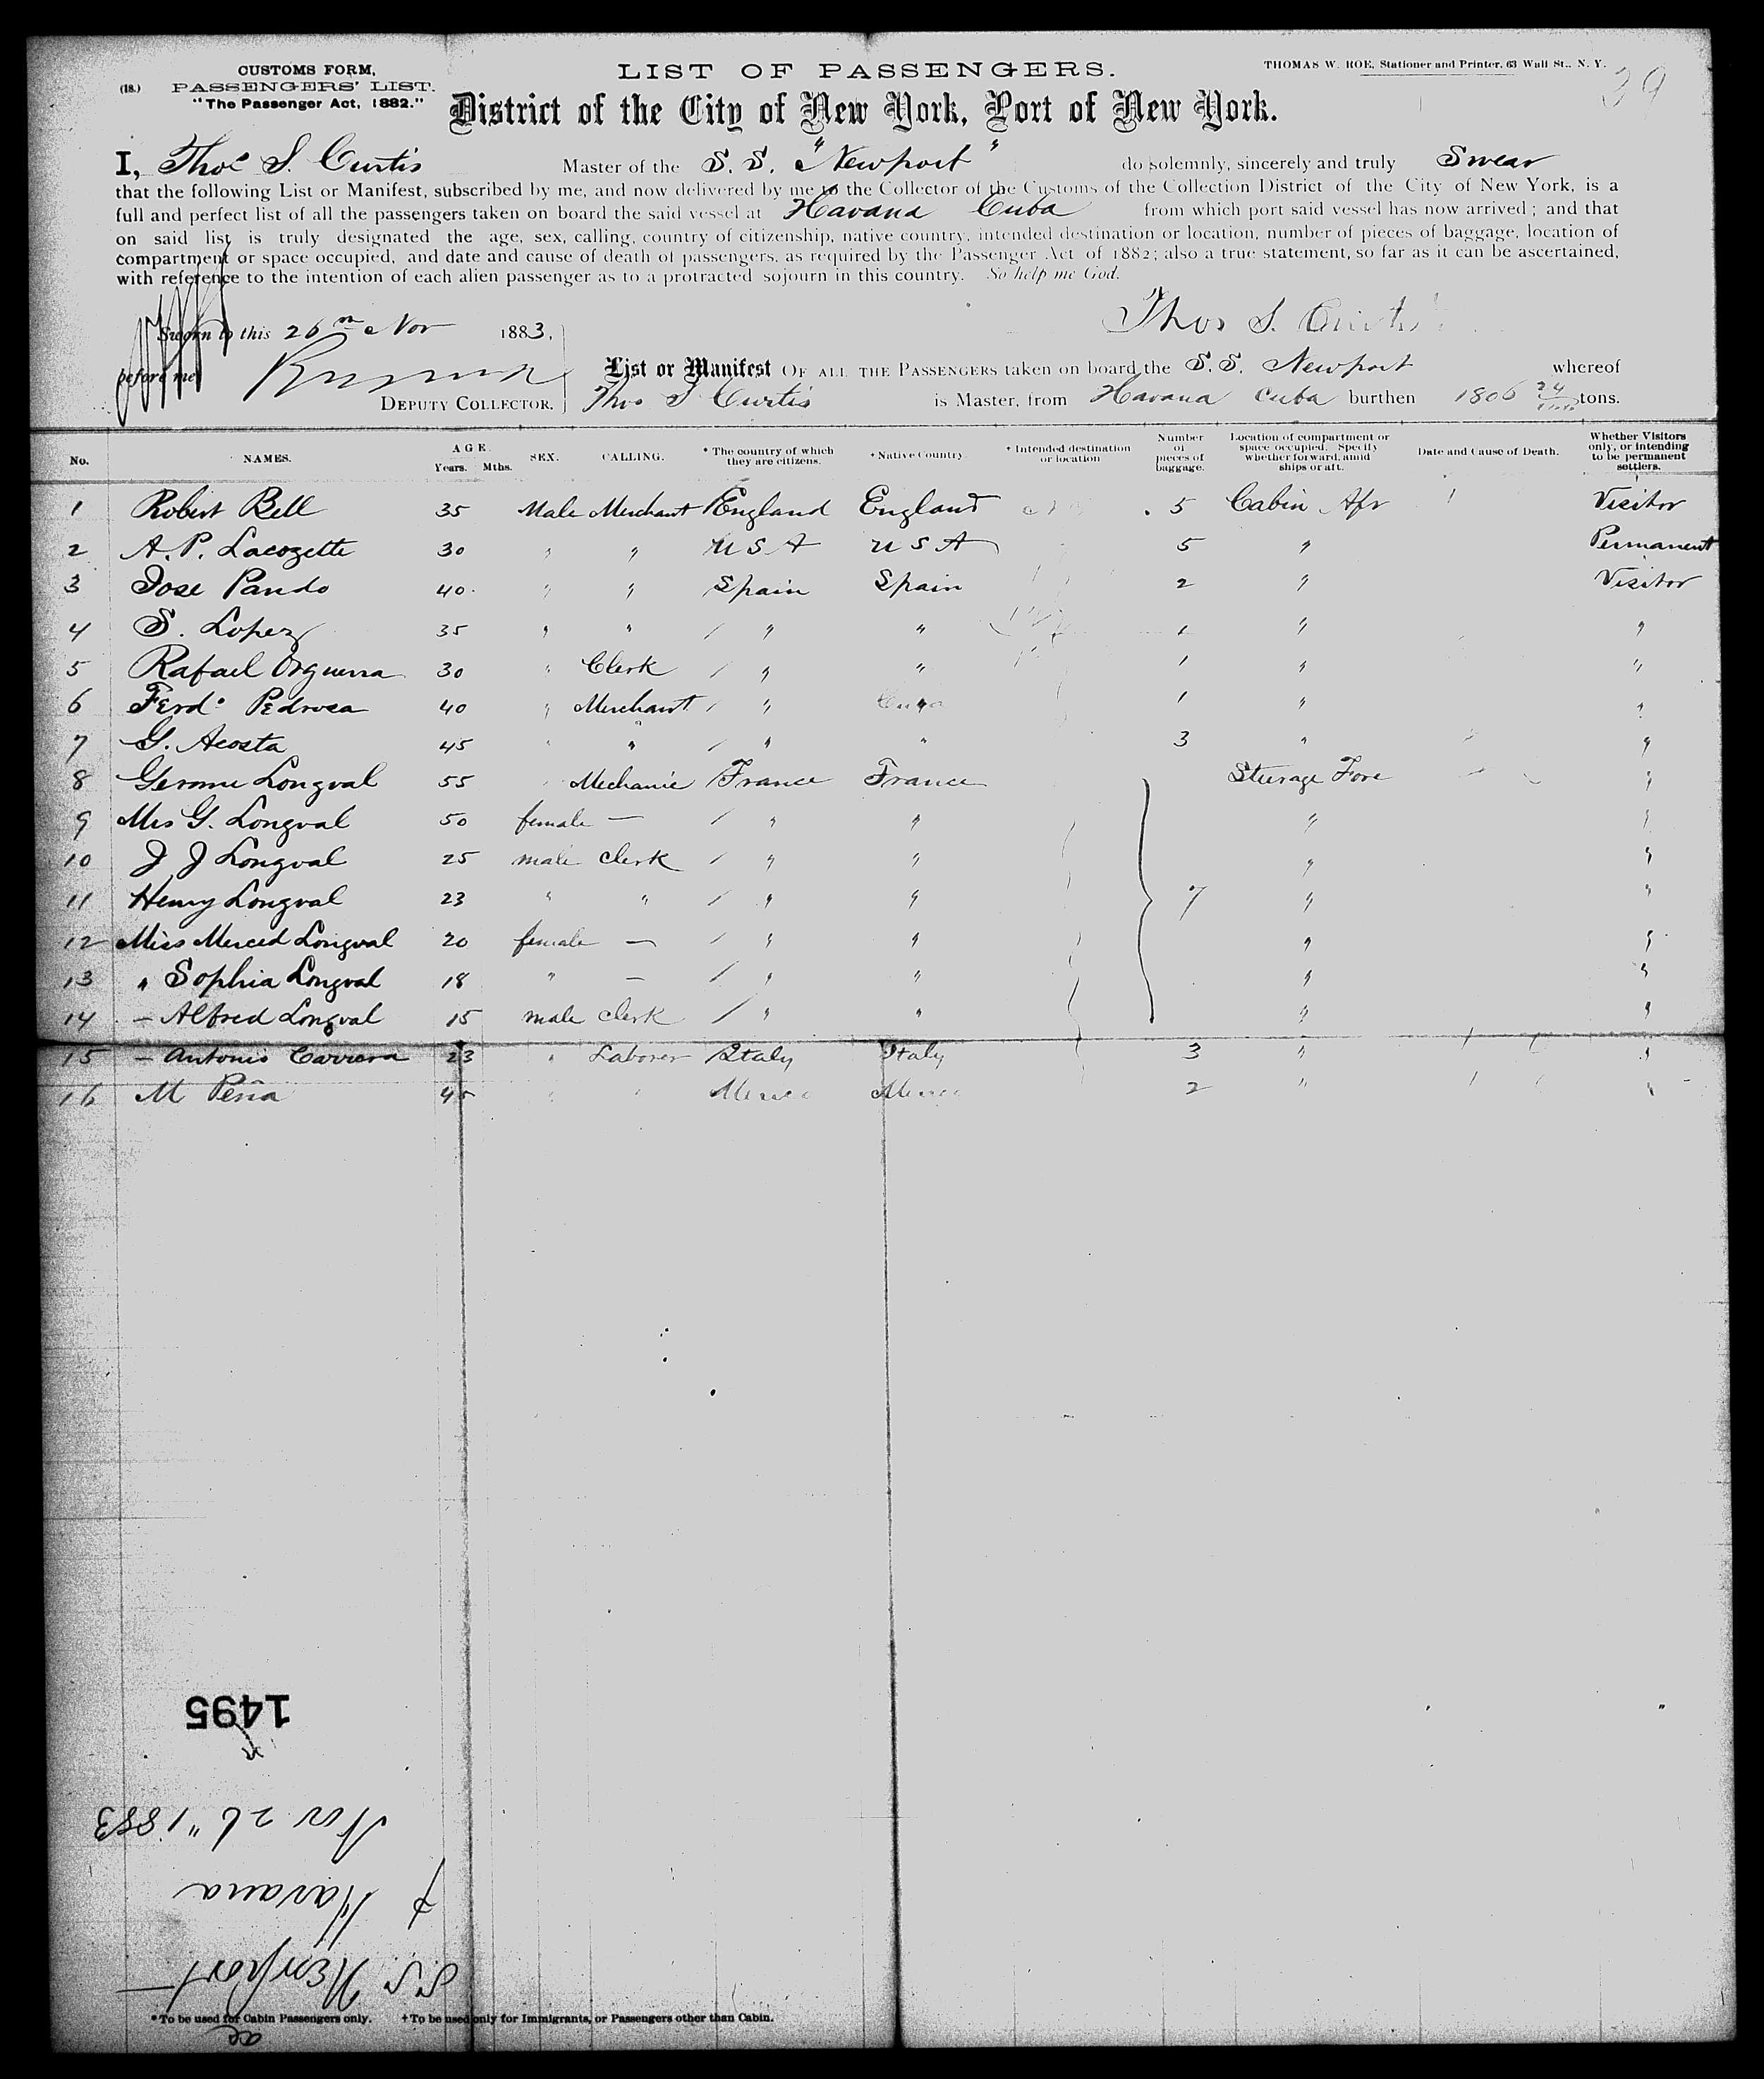 CUSTOMS FORM,
(18.) PASSENGERS' LIST.
"The Passenger Act, 1882."
LIST OF PASSENGERS.
THOMAS W. ROE, Stationer and Printer, 63 Wall St., N. Y.
39
District of the City of New York, Port of New York.
I, Thos S. Curtis Master of the S. S. "Newport" do solemnly, sincerely and truly Swear
that the following List or Manifest, subscribed by me, and now delivered by me to the Collector of the Customs of the Collection District of the City of New York, is a
full and perfect list of all the passengers taken on board the said vessel at Havana Cuba from which port said vessel has now arrived; and that
on said list is truly designated the age, sex, calling, country of citizenship, native country, intended destination or location, number of pieces of baggage, location of
compartment or space occupied, and date and cause of death of passengers, as required by the Passenger Act of 1882; also a true statement, so far as it can be ascertained,
with reference to the intention of each alien passenger as to a protracted sojourn in this country. So help me God.
Thos S. Curtis
Sworn to this 26 Nov 1883,
before me
DEPUTY COLLECTOR.
List or Manifest OF ALL THE PASSENGERS taken on board the S.S. Newport whereof
Thos S Curtis is Master, from Havana Cuba burthen 1806 24 tons.
No. NAMES. AGE. Years. Mths. SEX. CALLING. * The country of which they are citizens. + Native Country + Intended destination or location Number of pieces of baggage. Location of compartment or space occupied. Specify whether forward, amid ships or aft. Date and Cause of Death. Whether Visitors only, or intending to be permanent settlers.
1 Robert Bell 35 Male Merchant England England 5 Cabin Afr Visitor
2 A. P. Lacozette 30 " " U S A U S A 5 " Permanent
3 Jose Pando 40 " " Spain Spain 2 " Visitor
4 S. Lopez 35 " " " " 1 " "
5 Rafael 30 " Clerk " " 1 " "
6 Ferdo Pedrosa 40 " Merchant " Cuba 1 " "
7 G. Acosta 45 " " " " 3 " "
8 Gerome Longval 55 " Mechanic France France Steerage Fore "
9 Mrs G. Longval 50 female — " " " "
10 J J Longval 25 male Clerk " " " "
11 Henry Longval 23 " " " " 7 " "
12 Miss Merced Longval 20 female — " " " "
13 " Sophia Longval 18 " — " " " "
14 — Alfred Longval 15 male Clerk " " " "
15 — Antonio Carrera 23 " Laborer Italy Italy 3 " "
16 M Peña 45 " " Mexico Mexico 2 " "
1495
Nov 26" 1883
Havana
S.S. Newport
* To be used for Cabin Passengers only. + To be used only for Immigrants, or Passengers other than Cabin.